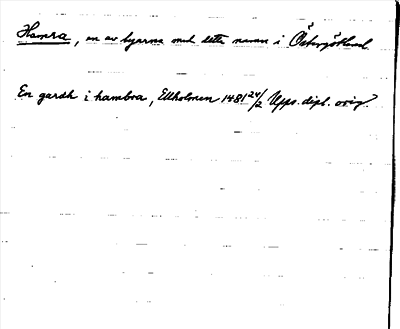 Hamra, en av byarna med detta namn i Östergötland.
En gardh i hambra, Ekholmen 1481 24/2 Upps. dipl. orig.